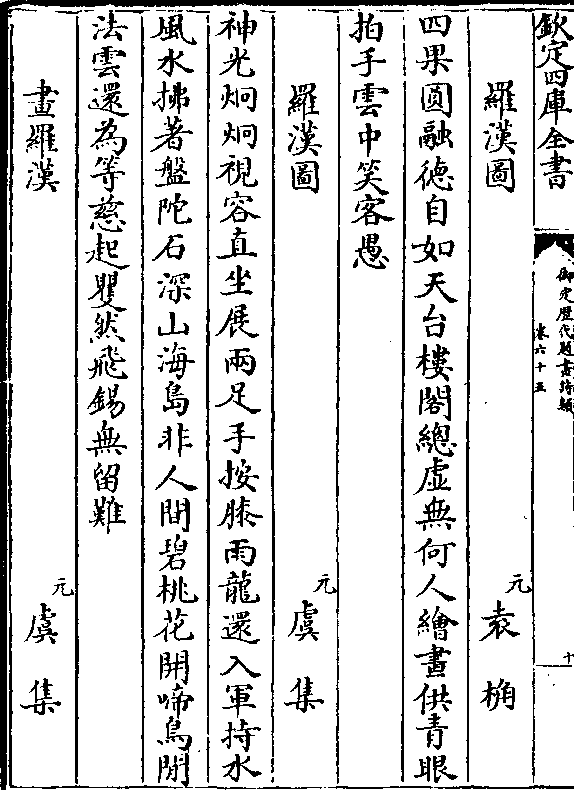 欽定四庫全書
御定歷代題畫詩類
卷六十五
十
羅漢圖
元
袁桷
四果圓融德自如天台樓閣總虛無何人繪畫供青眼
拍手雲中笑客愚
羅漢圖
元
虞集
神光炯炯視容直坐展兩足手按膝雨龍還入軍持水
風水拂著盤陀石深山海島非人間碧桃花開啼鳥閒
法雲還為等慈起矍然飛錫無留難
畫羅漢
元
虞集